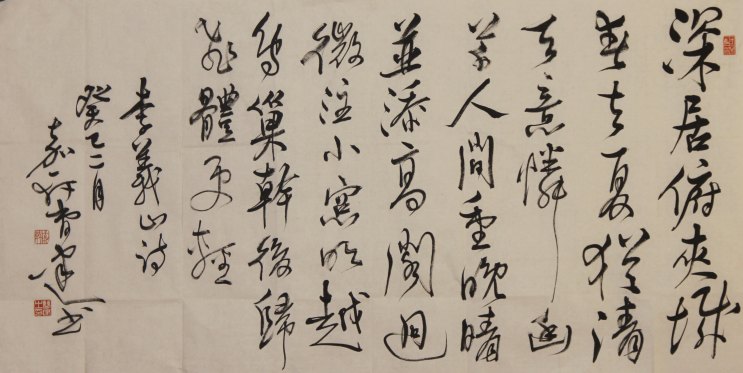 深居俯夾城
春去夏猶清
天意憐幽
草人間重晚晴
並添高閣迥
微注小窗明越
鳥巢幹後歸
飛體更輕
李義山詩
癸巳二月
嘉曹書